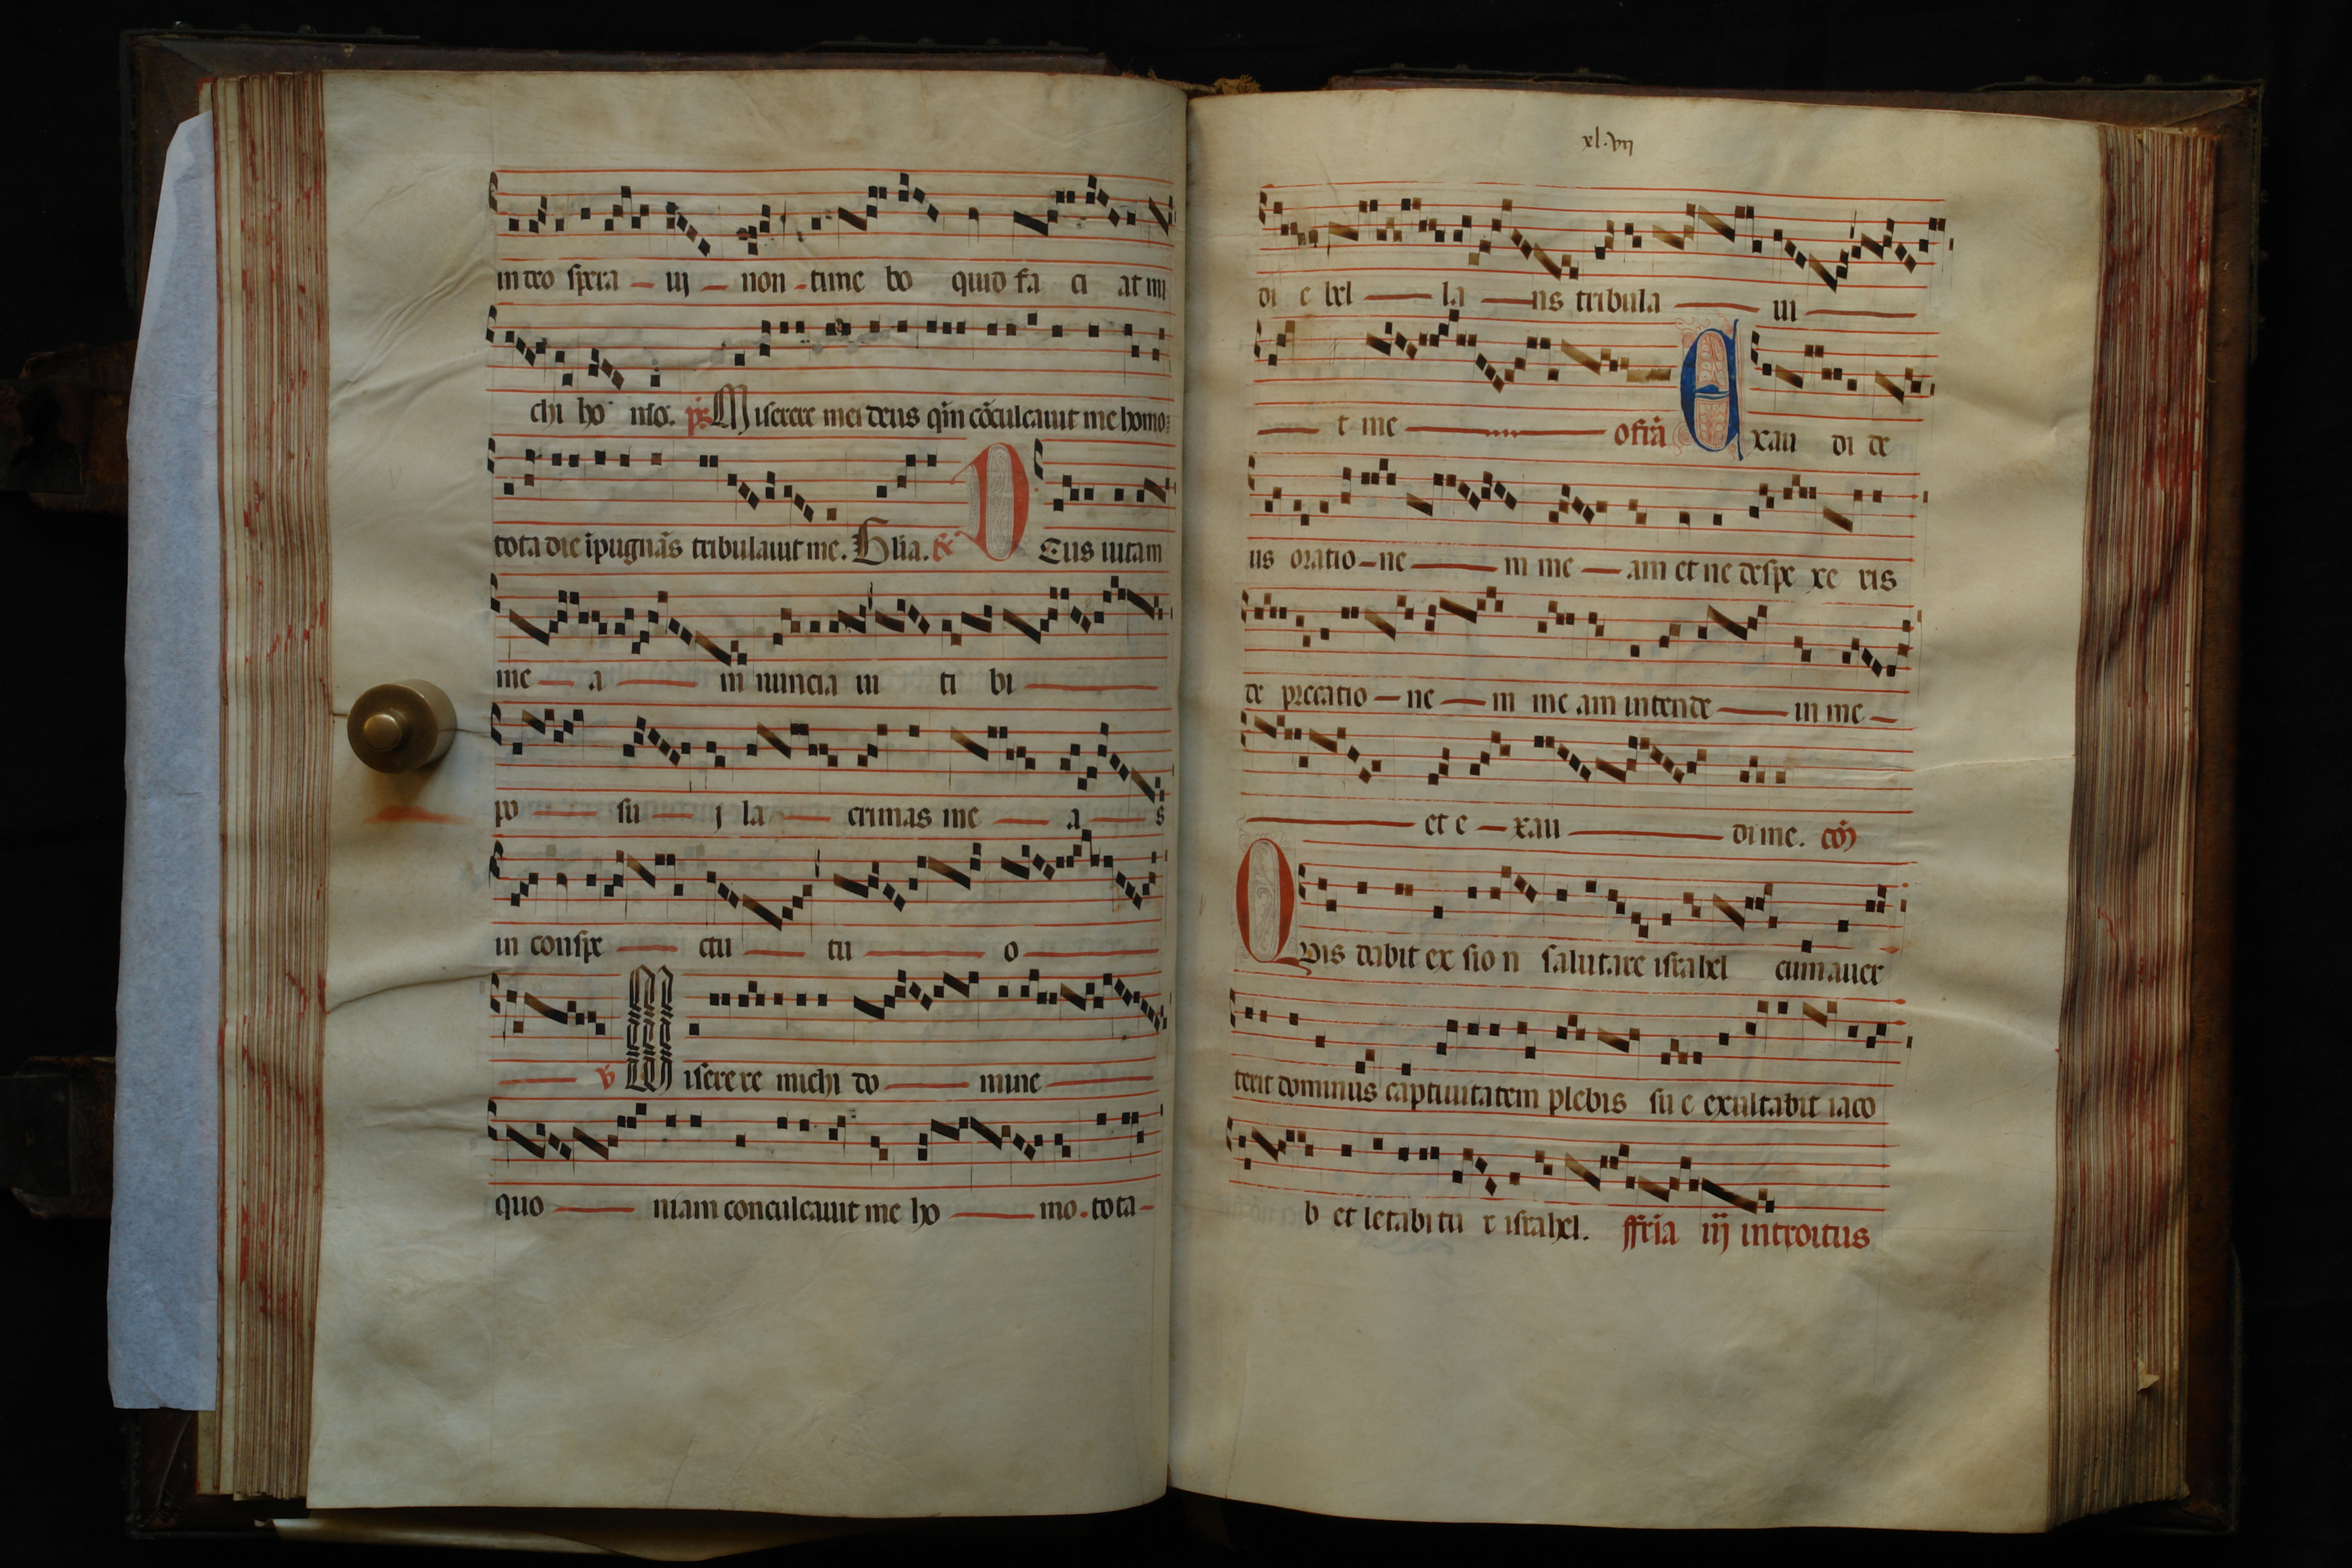 in deo spera uj non time bo quid fa ci at mi
chi ho mo. ps Miserere mei deus qm̄ cōculcauit me homo:
tota die ĩpugnãs tribulauit me. Glia. R̃ DEus uitam
me a m nuncia ui ti bi
po su j la crimas me a s
in conspe ctu tu o
V Miserere michi do mine
quo niam conculcauit me ho mo. tota
xl.vij
di e bel la ns tribula ui
t me ofrã Exau di de
us oratio ne m me am et ne despe xe ris
de precatio ne m me am intende in me
et e xau di me. cõ
Quis dabit ex sio n salutare israhel cum auer
terit dominus captiuitatem plebis su e exultabit iaco
b et letabitu r israhel. ffr̃ia iij introitus